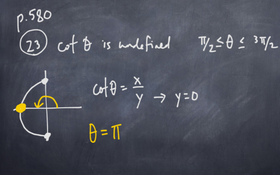 p.580
(23) cot θ is undefined π/2 ≤ θ ≤ 3π/2
cot θ = x/y → y=0
θ = π